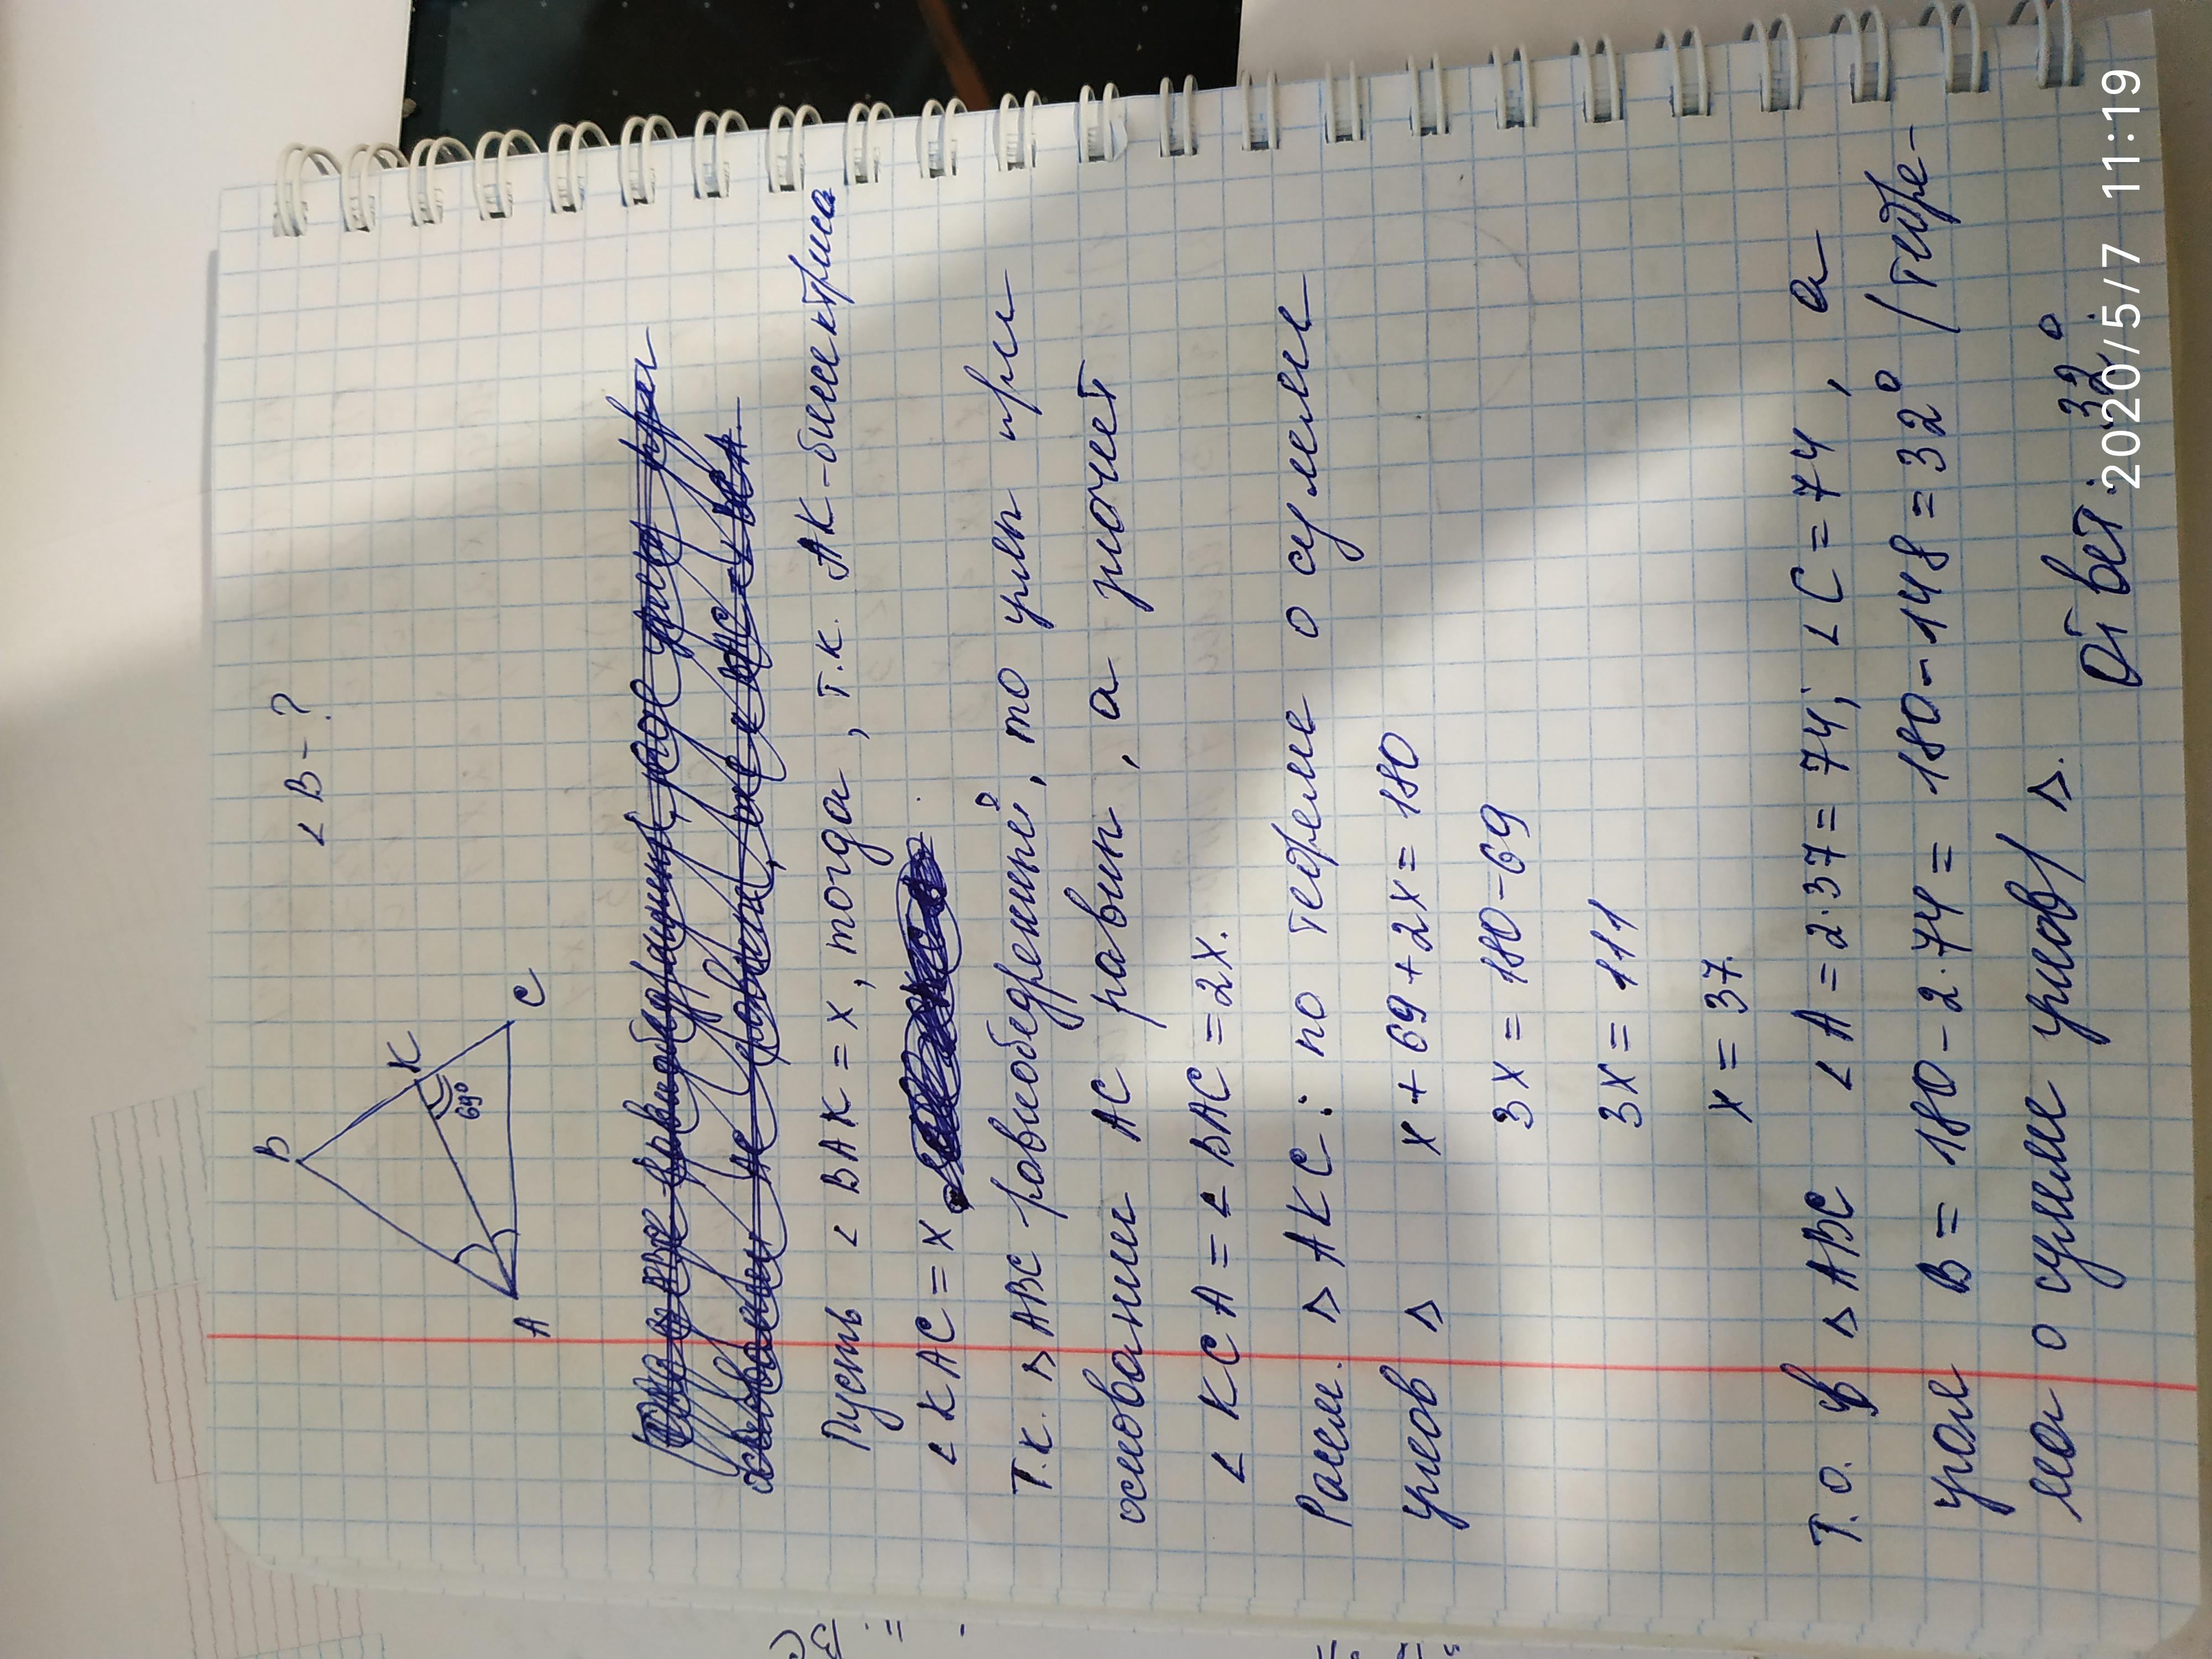 ∠B-?
B
K
69°
A
C
Пусть ∠BAK = x, тогда, т.к. AK-биссектриса
∠KAC = x
Т.к. △ABC равнобедренный, то углы при
основании AC равны, а значет
∠KCA = ∠BAC = 2x.
Рассм. △AKC: по теореме о сумме
углов △ x + 69 + 2x = 180
3x = 180-69
3x = 111
x = 37.
Т.о. в △ABC ∠A = 2·37 = 74; ∠C = 74, а
угол B = 180-2·74 = 180-148 = 32° (теоре-
ма о сумме углов) △.
Ответ: 32°
2020/5/7 11:19